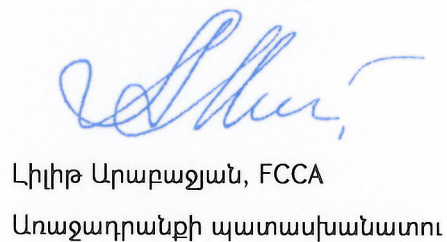 Լիլիթ Արաբաջյան, FCCA
Առաջադրանքի պատասխանատու